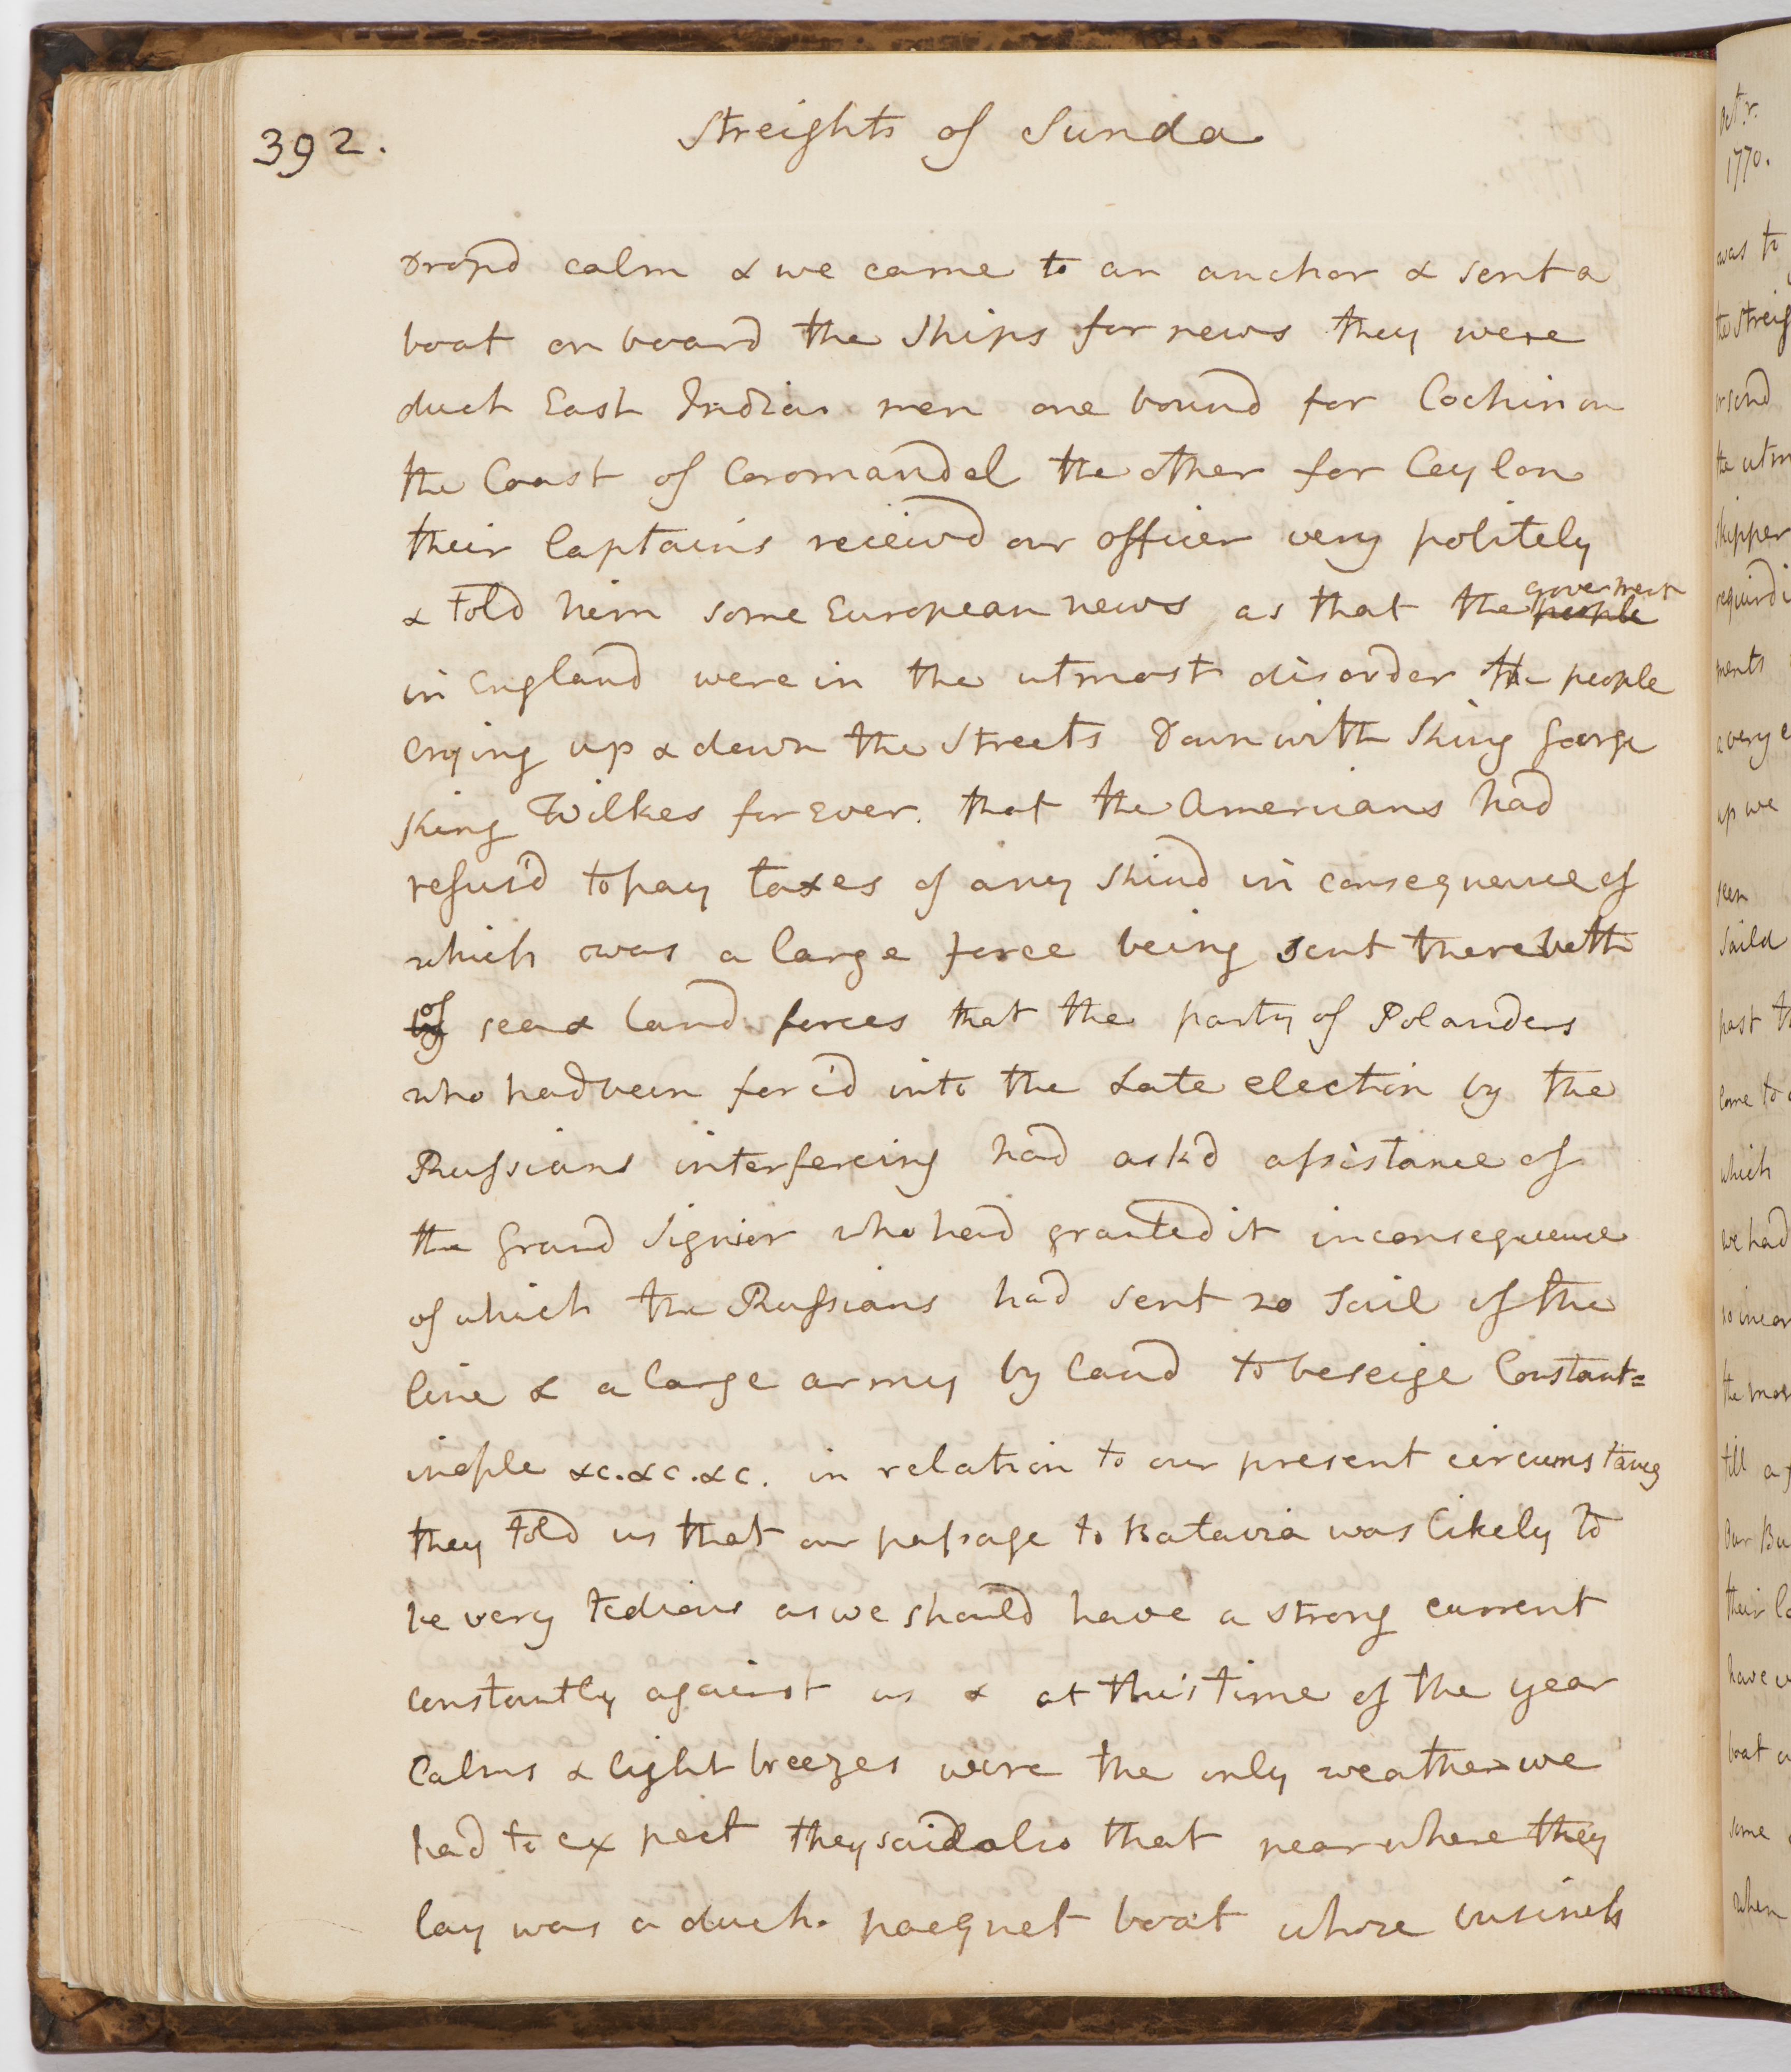 392.
Streights of Sunda
Dropd calm & we came to an anchor & sent a
boat on board the Ships for news they were
duch East India men one bound for Cochin on
the Coast of Coromandel the other for Ceylon
their Captains reciev'd our officer very politely
& told him some European news as that the ~~people~~ goverment
in England were in the utmost disorder the people
crying up & down the streets Down with King George
King Wilkes for Ever. that the Americans had
refus'd to pay taxes of any kind in consequence of
which was a large force being sent there both
~~by~~ of sea & land forces that the party of Polanders
who had been forc'd into the Late election by the
Russians interfereing had ask'd assistance of
the Grand Signior who had granted it in consequence
of which the Russians had sent 20 Sail of the
line & a large army by land to beseige Constant=
inople &c. &c. &c. in relation to our present circumstances
they told us that our passage to Batavia was likely to
be very tedious as we should have a strong current
constantly against us & at this time of the year
Calms & light breezes were the only weather we
had to expect they said also that near where they
lay was a duch pacquet boat whose business
Octr.
1770.
was to
the streig
or send
the utm
skipper
requird i
ments
a very e
up we
seen
Saild
past t
come to
which
we had
the mor
till
Our Bu
their
have
boat
some
when